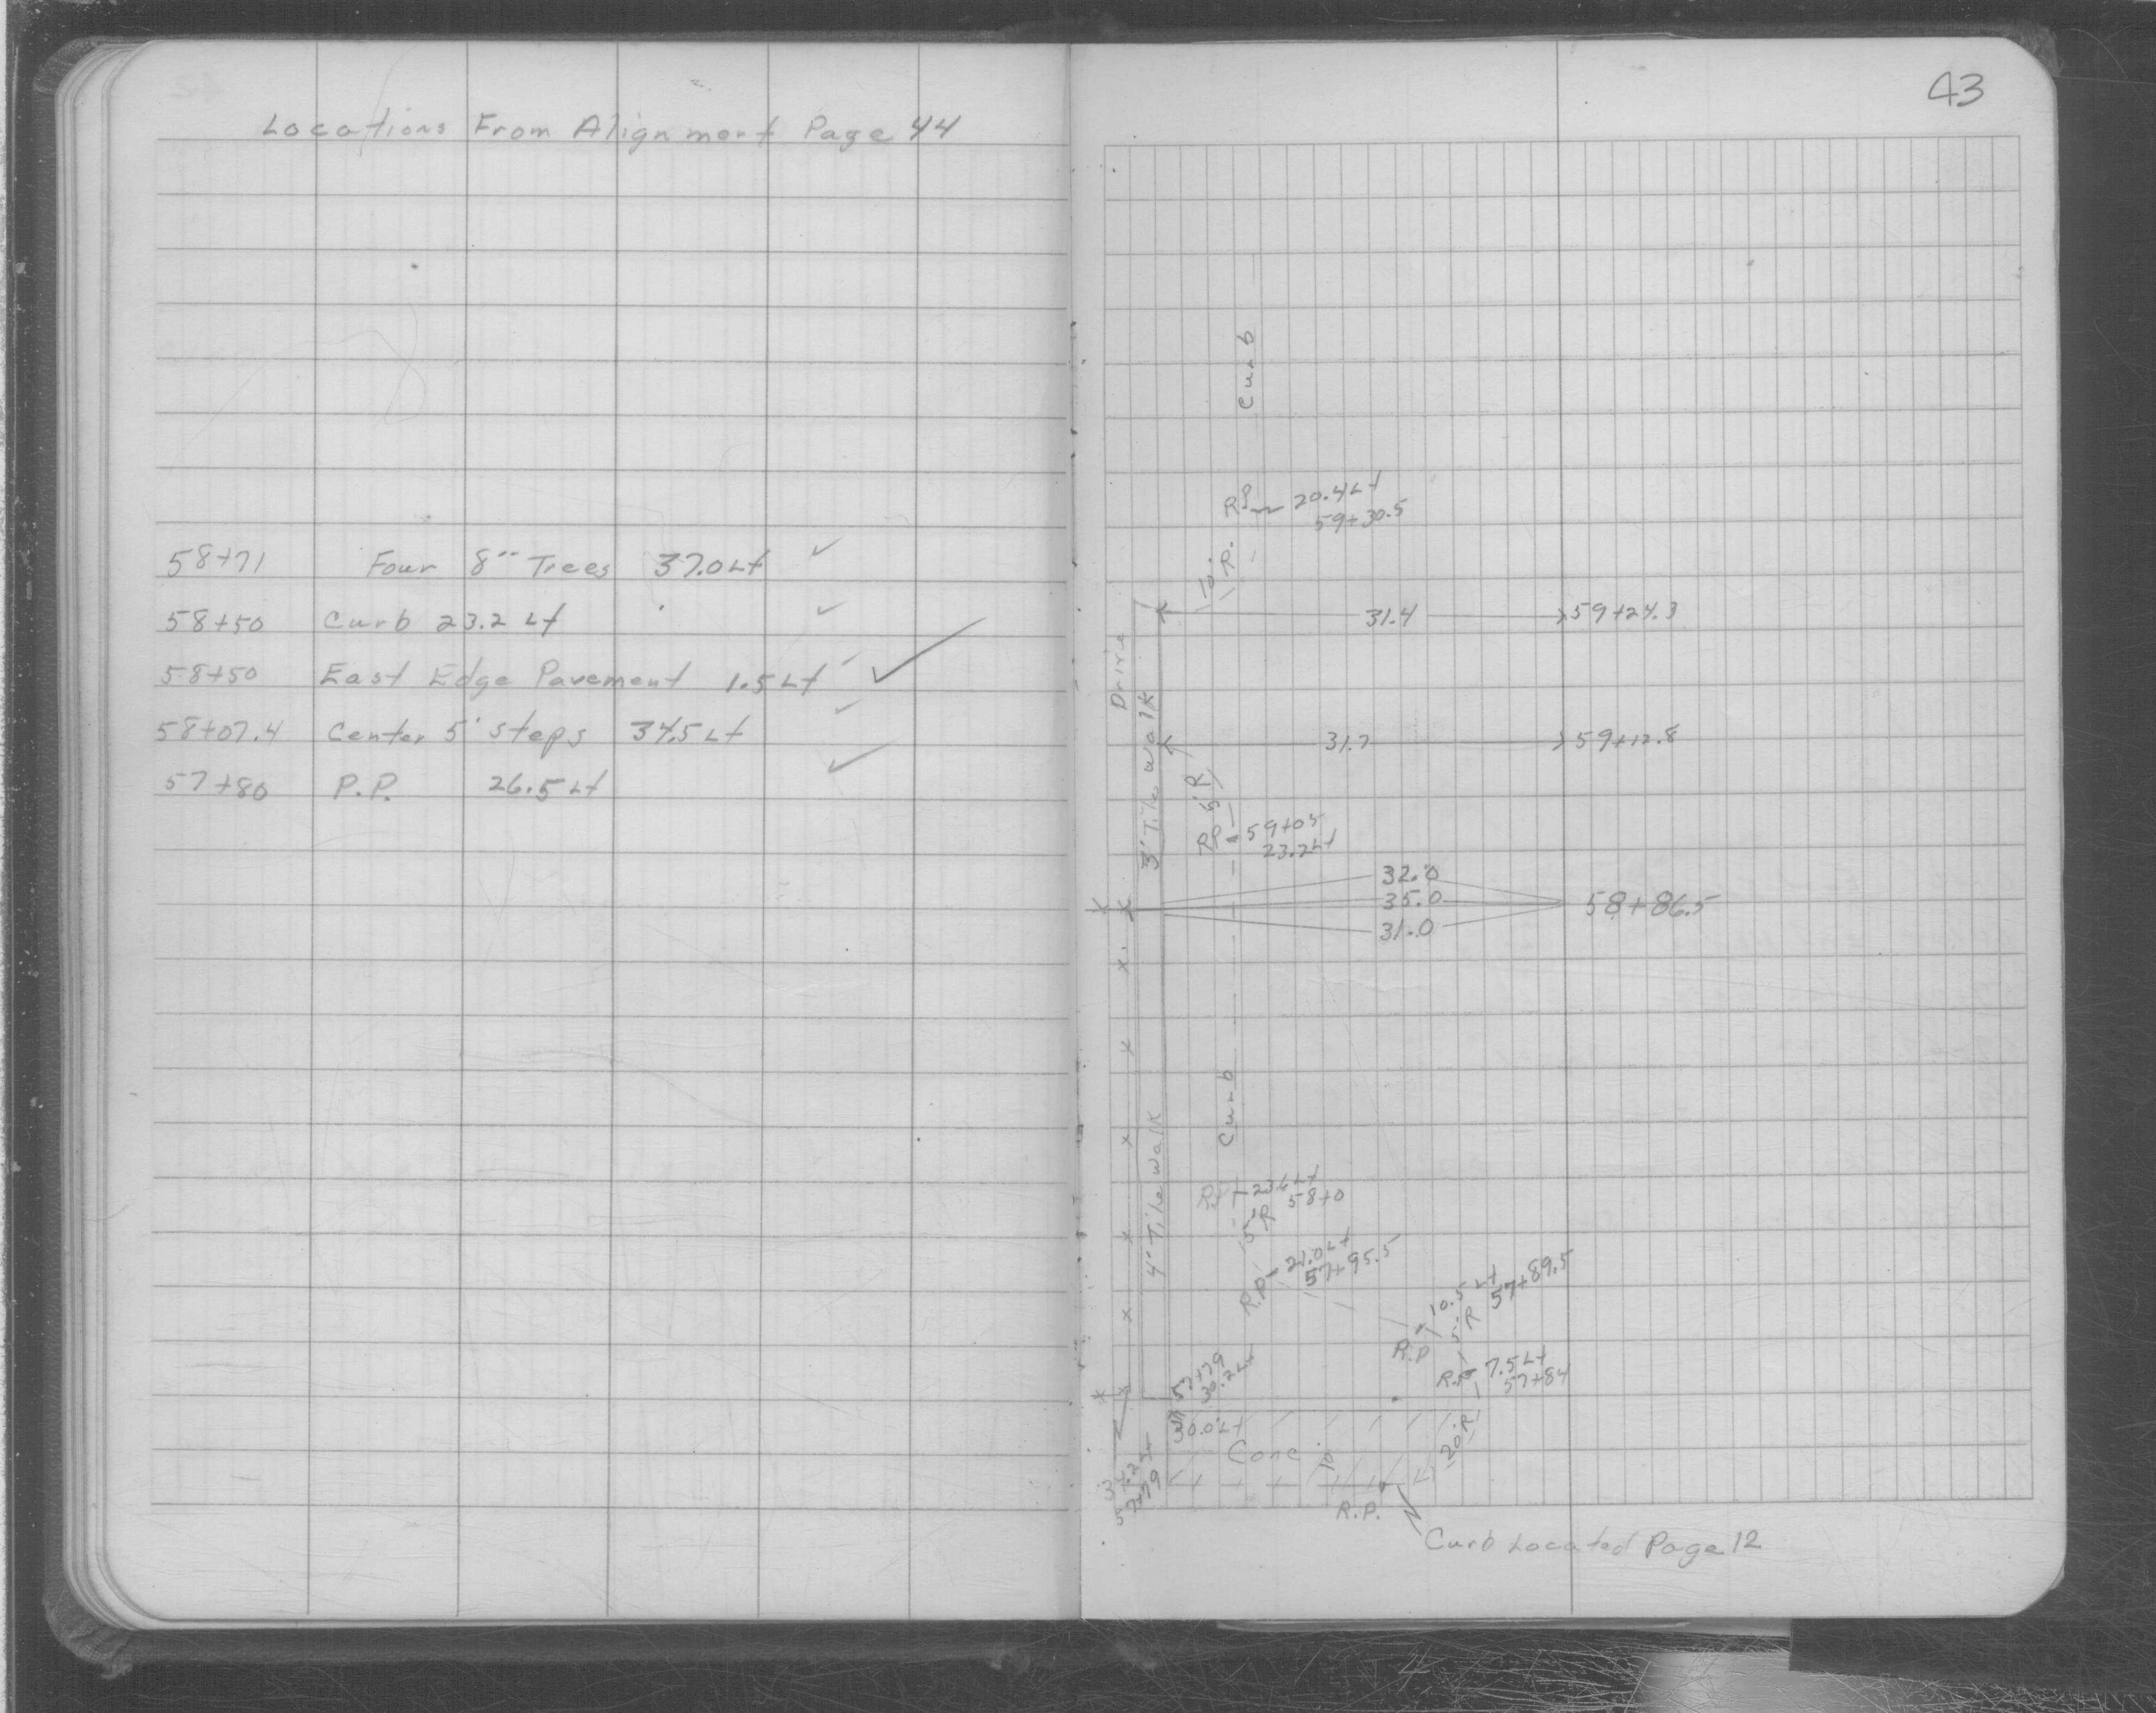 Locations From Alignment Page 44
58+71 Four 8" Trees 37.0 Lt
58+50 Curb 23.2 Lt
58+50 East Edge Pavement 1.5 Lt
58+07.4 Center 5' steps 34.5 Lt
57+80 P.P. 26.5 Lt
43
Curb
RP 20.4 Lt
59+30.5
10' R.
31.4 59+24.3
Drive
3' Tile walk
31.7 59+12.8
5' R
RP 59+05
23.2 Lt
32.0
35.0 58+86.5
31.0
Curb
4' Tile walk
R.P. 23.6 Lt
58+0
5' R
R.P. 21.0 Lt
57+95.5
R.P. 10.5 Lt
57+89.5
5' R
R.P. 7.5 Lt
57+84
57+79
30.2 Lt
30.0 Lt
Conc
10'
20' R
57+79
R.P.
Curb Located Page 12